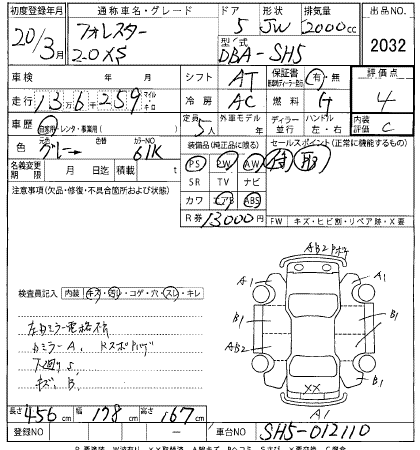 初度登録年月 通称車名・グレード ドア 形状 排気量 出品NO.
20/3月 フォレスター 2.0XS 5 JW 2000cc 2032
型式 DBA-SH5
車検 年 月 シフト AT 保証書 有・無 評価点
走行 13万6千259 マイル キロ 冷房 AC 燃料 ガ 4
車歴 自家用・レンタ・事業用( ) 定員 5人 外車モデル 年 ディーラー 並行 ハンドル 左・右 内装評価 C
色 元色 グレー 色替 カラーNO 61K 装備品(純正品に限る) セールスポイント(正常に機能するもの)
名義変更期限 月 日迄 積載 t PS PW AW
注意事項(欠品・修復・不具合箇所および状態) SR TV ナビ
カワ エアB ABS
R券 13000円 FW キズ・ヒビ割・リペア跡・X要
AB2
A1 A1
検査員記入 内装 キズ・汚レ・コゲ・穴・スレ・キレ
B1 B1
左カミラー電格不
AB2
カミラー A、
下廻り S
キズ、B、
B1
XX
A1
長さ 456cm 幅 178cm 高さ 167cm
登録NO ー 車台NO SH5-012110